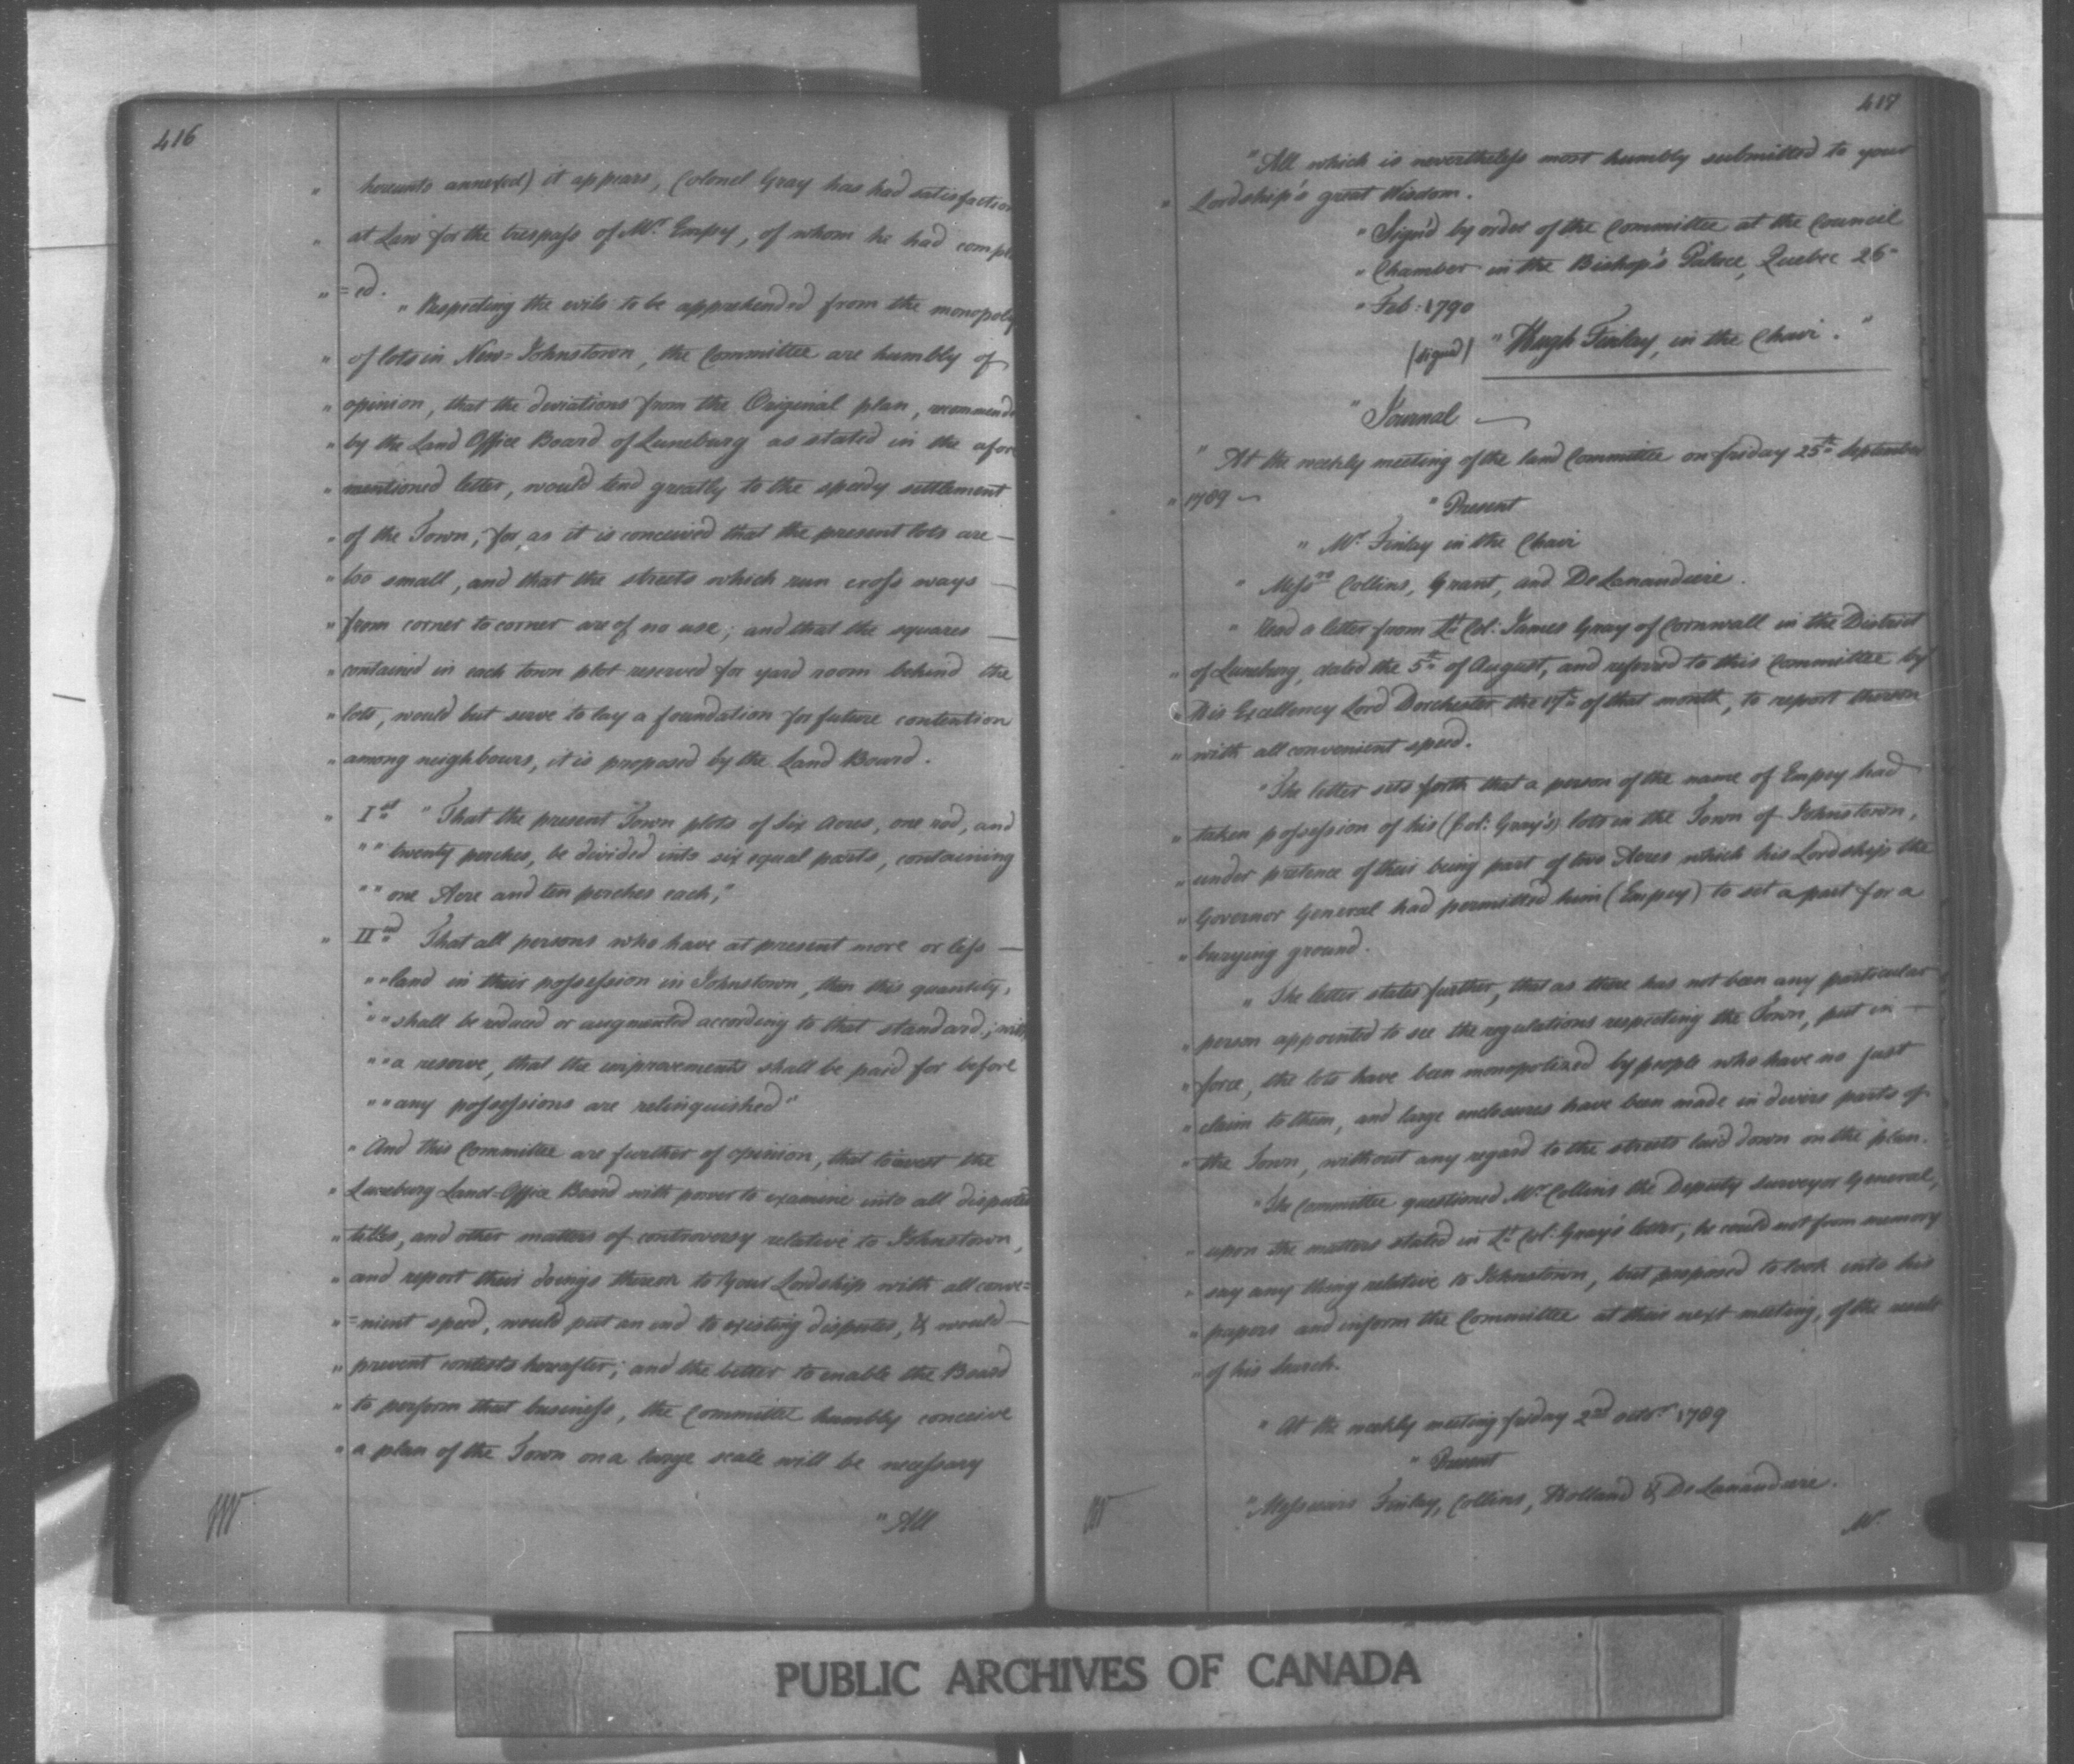 416
" hereunto annexed) it appears, Colonel Gray has had satisfaction
" at Law for the trespass of Mr. Empey, of whom he had compl
" =ed.
" Respecting the evils to be apprehended from the monopoly
" of lots in New=Johnstown, the Committee are humbly of
" opinion, that the deviations from the Original plan, recommend
" by the Land Office Board of Luneburg as stated in the afore
" mentioned letter, would tend greatly to the speedy settlement
" of the Town; for, as it is conceived that the present lots are —
" too small, and that the streets which run cross ways —
" from corner to corner are of no use; and that the squares —
" contained in each town plot reserved for yard room behind the
" lots, would but serve to lay a foundation for future contention
" among neighbours, it is proposed by the Land Board.
" Ist " That the present Town plots of Six Acres, one rod, and
" " twenty perches, be divided into six equal parts, containing
" " one Acre and ten perches each,"
" IInd That all persons who have at present more or less —
" " land in their possession in Johnstown, than this quantity,
" " shall be reduced or augmented according to that standard; with
" " a reserve, that the improvements shall be paid for before
" " any possessions are relinquished"
" And this Committee are further of opinion, that to invest the
" Luneburg Land=Office Board with power to examine into all disputed
" titles, and other matters of controversy relative to Johnstown,
" and report their doings thereon to Your Lordship with all conve=
" =nient speed, would put an end to existing disputes, & would —
" prevent contests hereafter; and the better to enable the Board
" to perform that business, the Committee humbly conceive
" a plan of the Town on a large scale will be necessary
" All
417
" All which is nevertheless most humbly submitted to your
" Lordship's great Wisdom.
" Sign'd by order of the Committee at the Council
" Chamber in the Bishop's Palace, Quebec 26-
" Feb: 1790
(signed) " Hugh Finlay, in the Chair."
" Journal —
" At the weekly meeting of the land Committee on friday 25th September
" 1789 —
" Present
" Mr. Finlay in the Chair
" Messrs Collins, Grant, and DeLanaudiere.
" Read a letter from Lt Col: James Gray of Cornwall in the District
" of Luneburg, dated the 5th of August, and referred to this Committee by
" His Excellency Lord Dorchester the 17th of that month, to report thereon
" with all convenient speed.
" The letter sets forth that a person of the name of Empey had
" taken possession of his (Col: Gray's) lots in the Town of Johnstown,
" under pretence of their being part of two Acres which his Lordship the
" Governor General had permitted him (Empey) to set a part for a
" burying ground.
" The letter states further, that as there has not been any particular
" person appointed to see the regulations respecting the Town, put in —
" force, the lots have been monopolized by people who have no just
" claim to them, and large enclosures have been made in divers parts of
" the Town, without any regard to the streets laid down on the plan.
" The Committee questioned Mr. Collins the Deputy Surveyor General,
" upon the matters stated in Lt Col: Gray's letter, he could not from memory
" say any thing relative to Johnstown, but proposed to look into his
" papers and inform the Committee at their next meeting, of the result
" of his Search.
" At the weekly meeting friday 2nd octor 1789
" Present
" Messieurs Finlay, Collins, Holland & DeLanaudiere.
Mr.
PUBLIC ARCHIVES OF CANADA